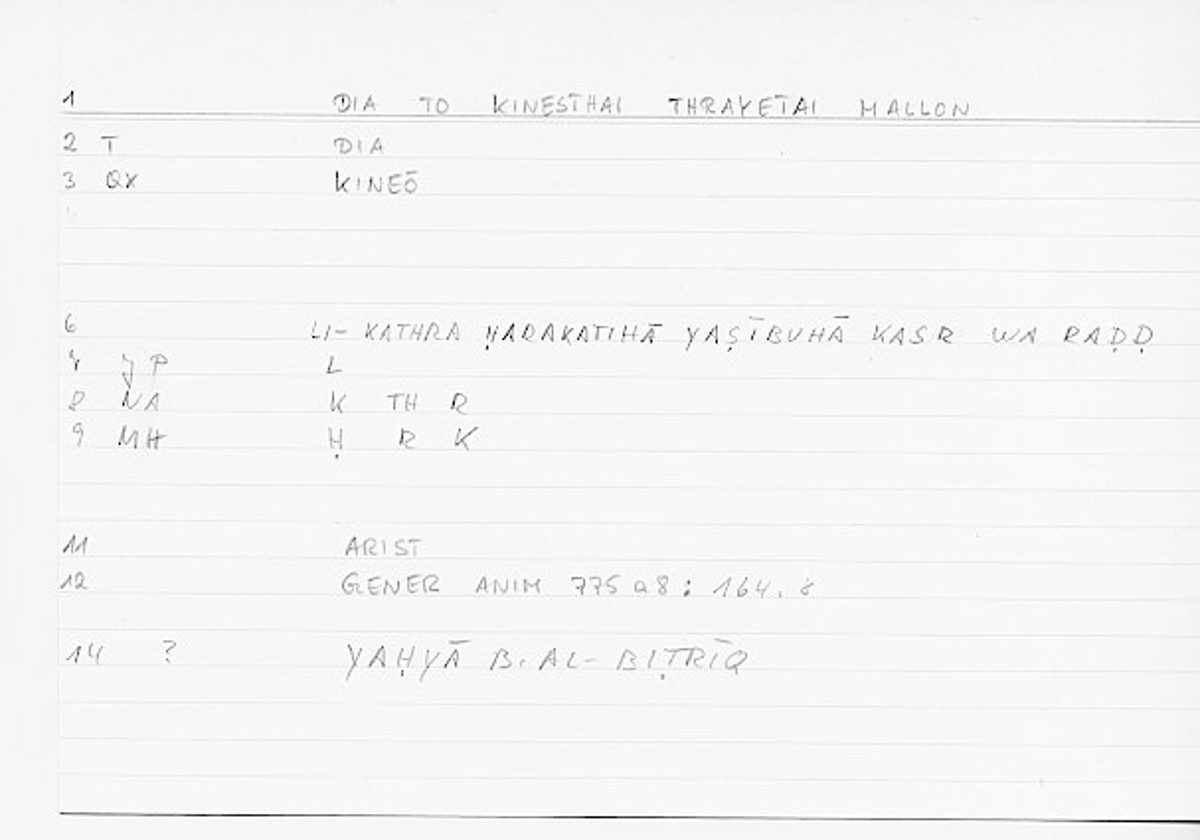 1 DIA TO KINESTHAI THRAYETAI MALLON
2 T DIA
3 QX KINEŌ
6 LI- KATHRA ḤARAKATIHĀ YAṢĪBUHĀ KASR WA RAḌḌ
P L
8 NA K TH R
9 MH Ḥ R K
11 ARIST
12 GENER ANIM 775 a 8 : 164. 8
14 ? YAḤYĀ B. AL- BIṬRĪQ